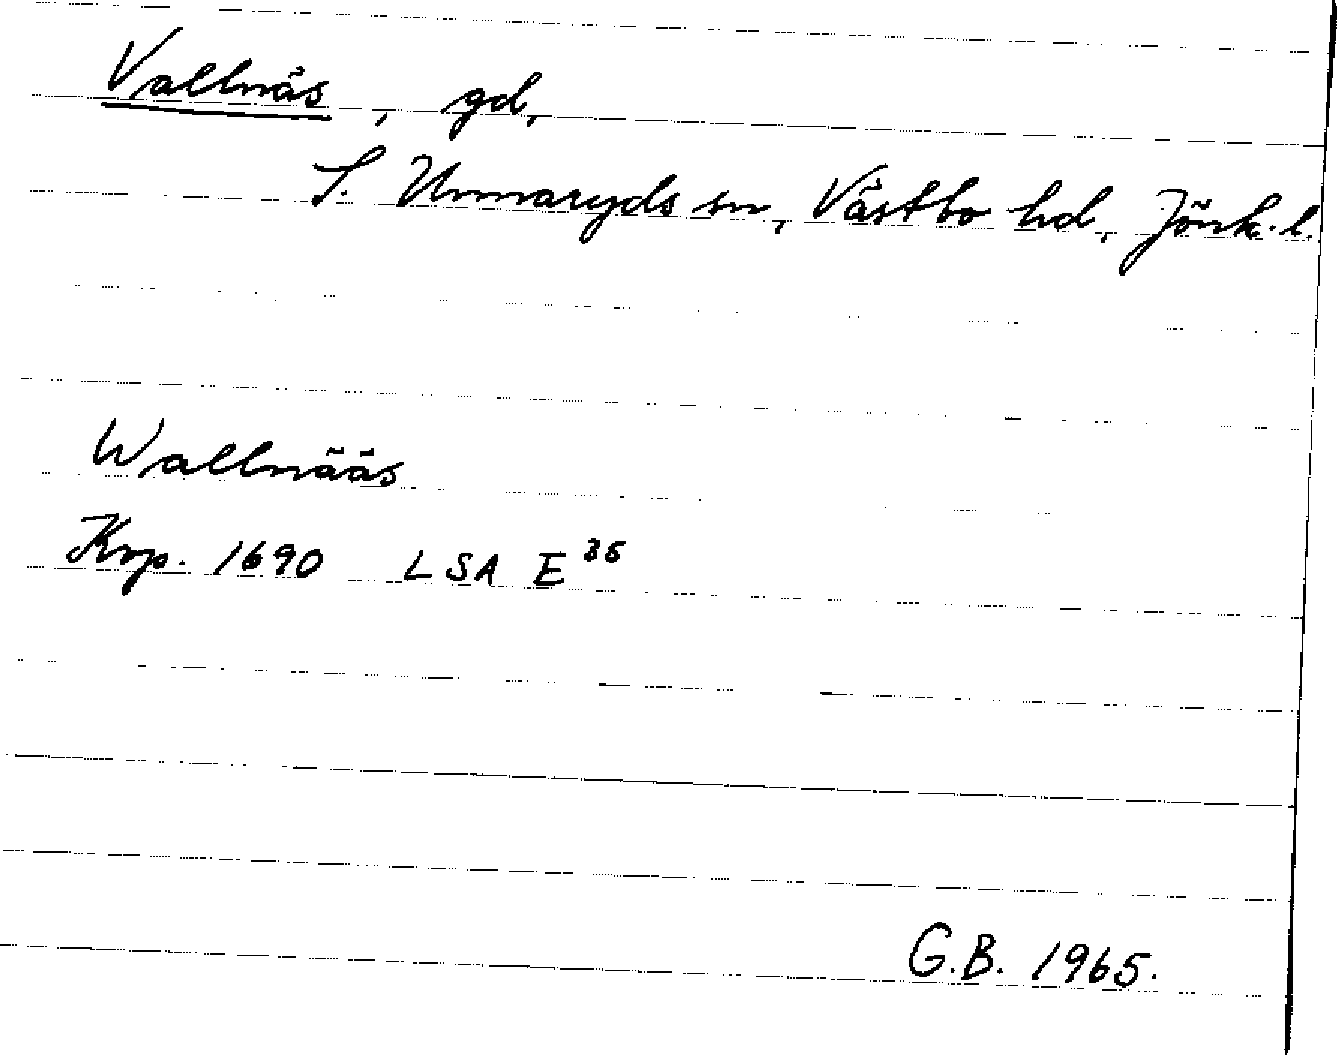 Vallnäs, gd,
S. Unnaryds sn, Västbo hd, Jönk. l.
Wallnääs
Krp. 1690 LSA E 36
G.B. 1965.